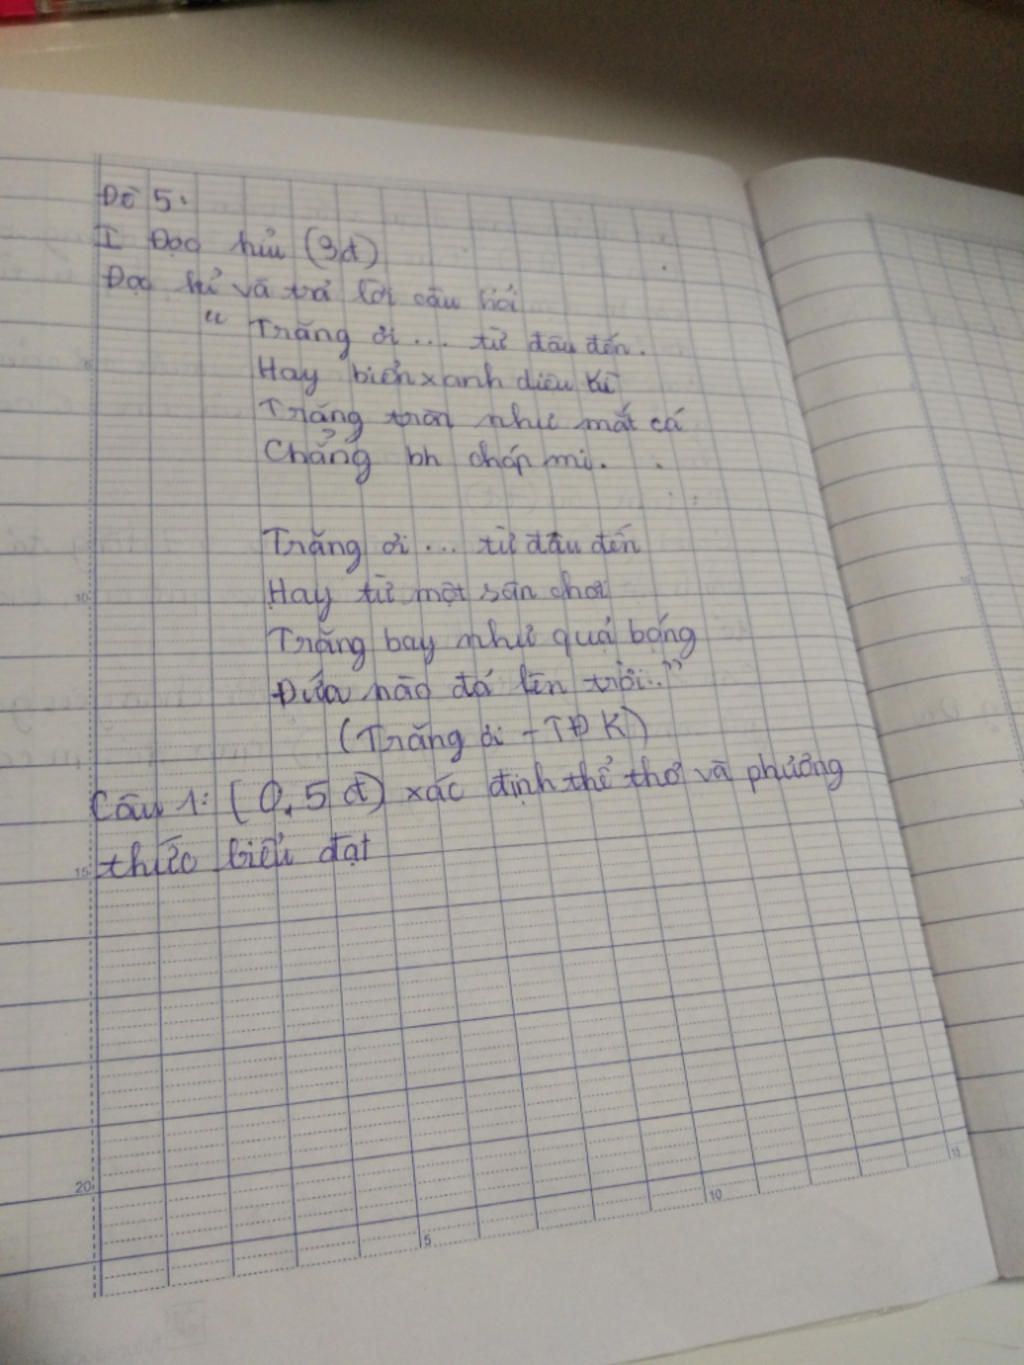 Đề 5:
I Đọc hiểu (3đ)
Đọc kỉ và trả lời câu hỏi
" Trăng ơi... từ đâu đến.
Hay biển xanh diệu kì
Trăng tròn như mắt cá
Chẳng bh chớp mi.
Trăng ơi... từ đâu đến
Hay từ một sân chơi
Trăng bay như quả bóng
Đứa nào đá lên trời.."
(Trăng ơi - TĐK)
Câu 1: (0,5 đ) xác định thể thơ và phương
thức biểu đạt
5
10
15
20
5
10
15
10